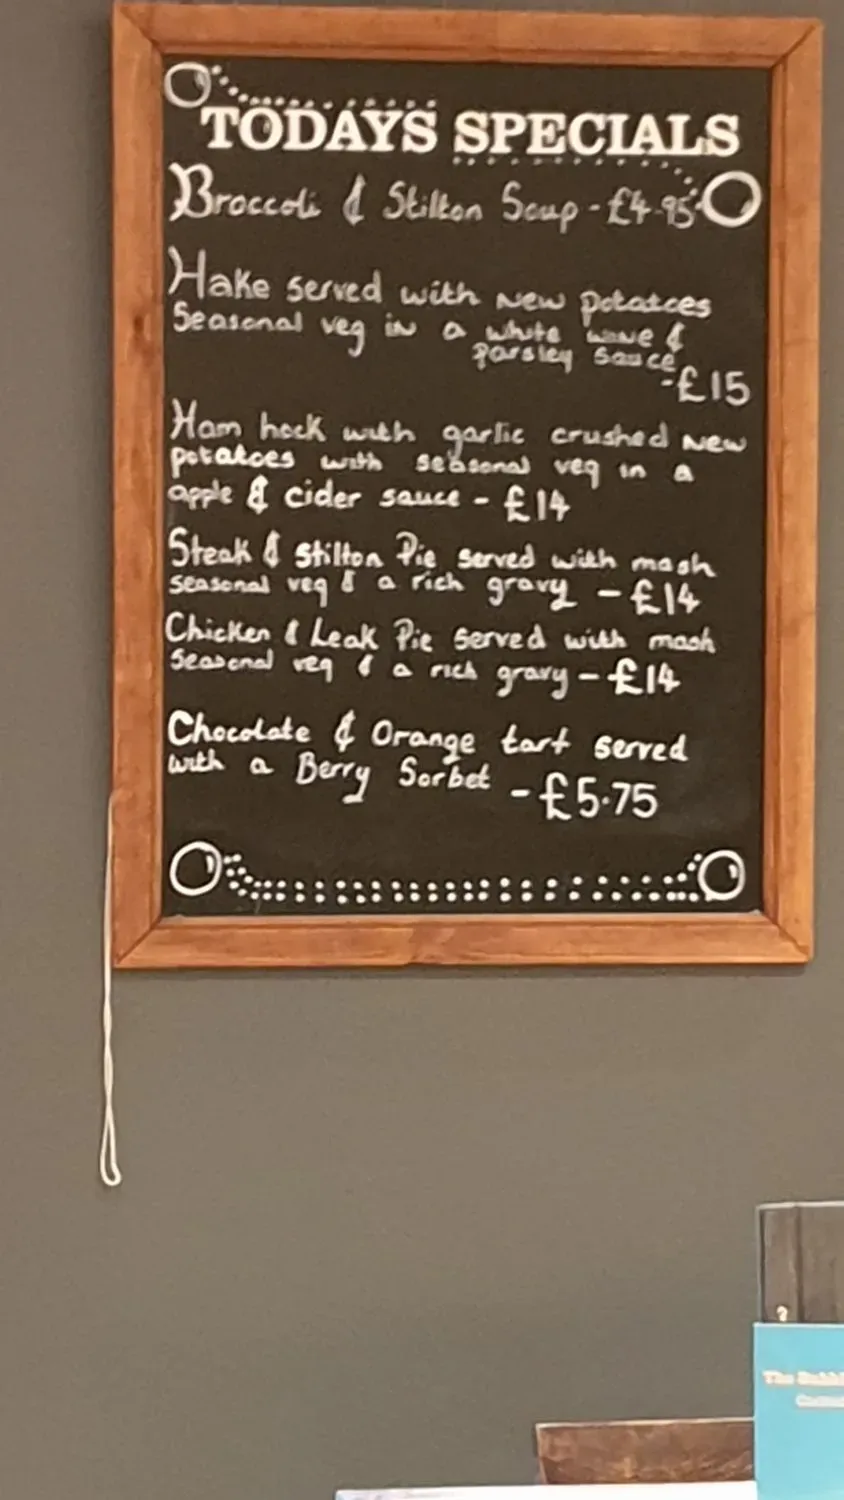 TODAYS SPECIALS
Broccoli & Stilton Soup - £4.95
Hake served with new potatoes
Seasonal veg in a white wine &
parsley sauce
- £15
Ham hock with garlic crushed new
potatoes with seasonal veg in a
apple & cider sauce - £14
Steak & Stilton Pie served with mash
seasonal veg & a rich gravy - £14
Chicken & Leak Pie served with mash
Seasonal veg & a rich gravy - £14
Chocolate & Orange tart served
with a Berry Sorbet - £5.75
The